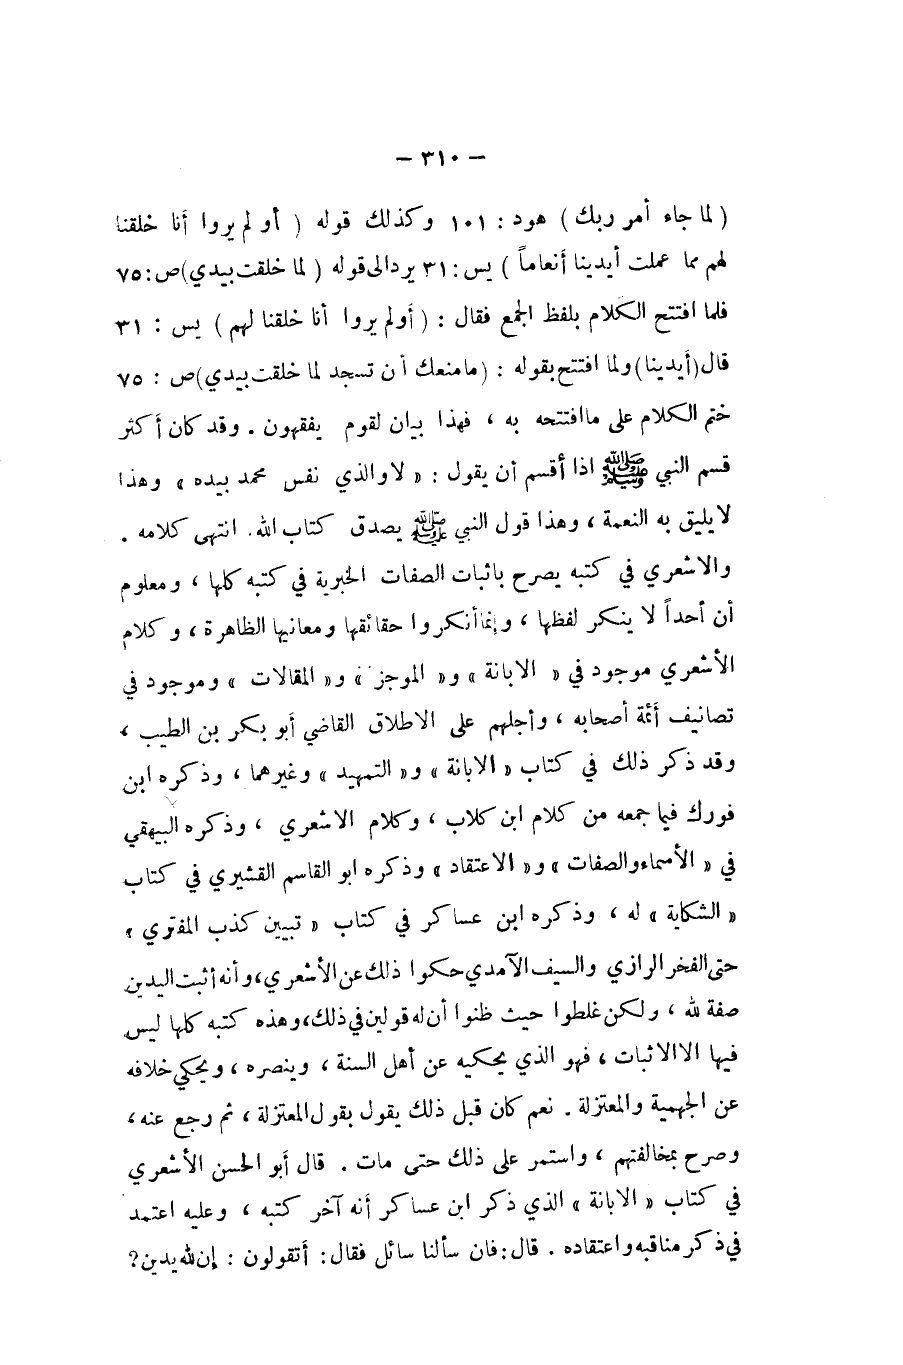 — ٣١٠ —
( لما جاء أمر ربك ) هود : ١٠١ وكذلك قوله ( أو لم يروا أنا خلقنا
لهم مما عملت أيدينا أنعاماً ) يس : ٣١ يرد الى قوله ( لما خلقت بيدي ) ص : ٧٥
فلما افتتح الكلام بلفظ الجمع فقال : ( أولم يروا أنا خلقنا لهم ) يس : ٣١
قال ( أيدينا ) ولما افتتح بقوله : ( مامنعك أن تسجد لما خلقت بيدي ) ص : ٧٥
ختم الكلام على ماافتتحه به ، فهذا بيان لقوم يفقهون . وقد كان أكثر
قسم النبي ﷺ اذا أقسم أن يقول : « لا والذي نفس محمد بيده » وهذا
لا يليق به النعمة ، وهذا قول النبي ﷺ يصدق كتاب الله . انتهى كلامه .
والاشعري في كتبه يصرح باثبات الصفات الخبرية في كتبه كلها ، ومعلوم
أن أحداً لا ينكر لفظها ، وإنما أنكروا حقائقها ومعانيها الظاهرة ، وكلام
الأشعري موجود في « الابانة » و« الموجز » و« المقالات » وموجود في
تصانيف أئمة أصحابه ، وأجلهم على الاطلاق القاضي أبو بكر بن الطيب ،
وقد ذكر ذلك في كتاب « الابانة » و« التمهيد » وغيرهما ، وذكره ابن
فورك فيما جمعه من كلام ابن كلاب ، وكلام الاشعري ، وذكره البيهقي
في « الأسماء والصفات » و« الاعتقاد » وذكره ابو القاسم القشيري في كتاب
« الشكاية » له ، وذكره ابن عساكر في كتاب « تبيين كذب المفتري »
حتى الفخر الرازي والسيف الآمدي حكوا ذلك عن الأشعري ، وأنه أثبت اليدين
صفة لله ، ولكن غلطوا حيث ظنوا أن له قولين في ذلك ، وهذه كتبه كلها ليس
فيها الا الاثبات ، فهو الذي يحكيه عن أهل السنة ، وينصره ، ويحكي خلافه
عن الجهمية والمعتزلة . نعم كان قبل ذلك يقول بقول المعتزلة ، ثم رجع عنه ،
وصرح بمخالفتهم ، واستمر على ذلك حتى مات . قال أبو الحسن الأشعري
في كتاب « الابانة » الذي ذكر ابن عساكر أنه آخر كتبه ، وعليه اعتمد
في ذكر مناقبه واعتقاده . قال : فان سألنا سائل فقال : أتقولون : إن لله يدين ؟